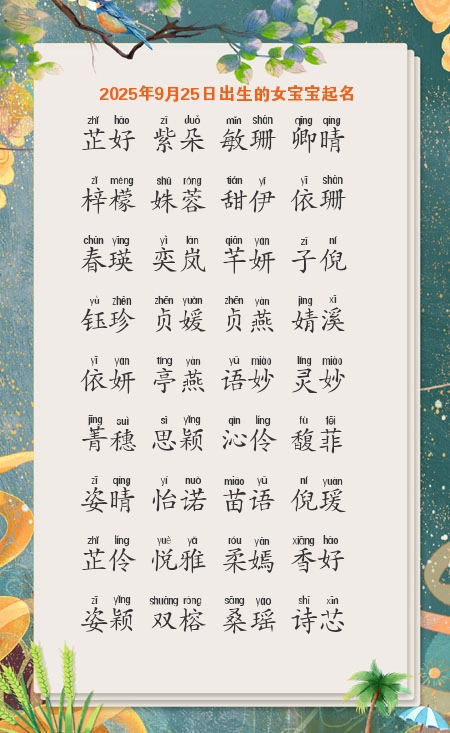 2025年9月25日出生的女宝宝起名
zhǐ hǎo zǐ duǒ mǐn shān qīng qíng
芷好 紫朵 敏珊 卿晴
zǐ méng shū róng tián yī yī shān
梓檬 姝蓉 甜伊 依珊
chūn yīng yì lán qiān yán zǐ ní
春瑛 奕岚 芊妍 子倪
yù zhēn zhēn yuán zhēn yàn jìng xī
钰珍 贞媛 贞燕 婧溪
yī yán tíng yàn yǔ miào líng miào
依妍 亭燕 语妙 灵妙
jīng suì sī yǐng qìn líng fù fēi
菁穗 思颖 沁伶 馥菲
zī qíng yí nuò miáo yǔ ní yuàn
姿晴 怡诺 苗语 倪瑗
zhǐ líng yuè yǎ róu yān xiāng hǎo
芷伶 悦雅 柔嫣 香好
zī yǐng shuāng róng sāng yáo shī xīn
姿颖 双榕 桑瑶 诗芯